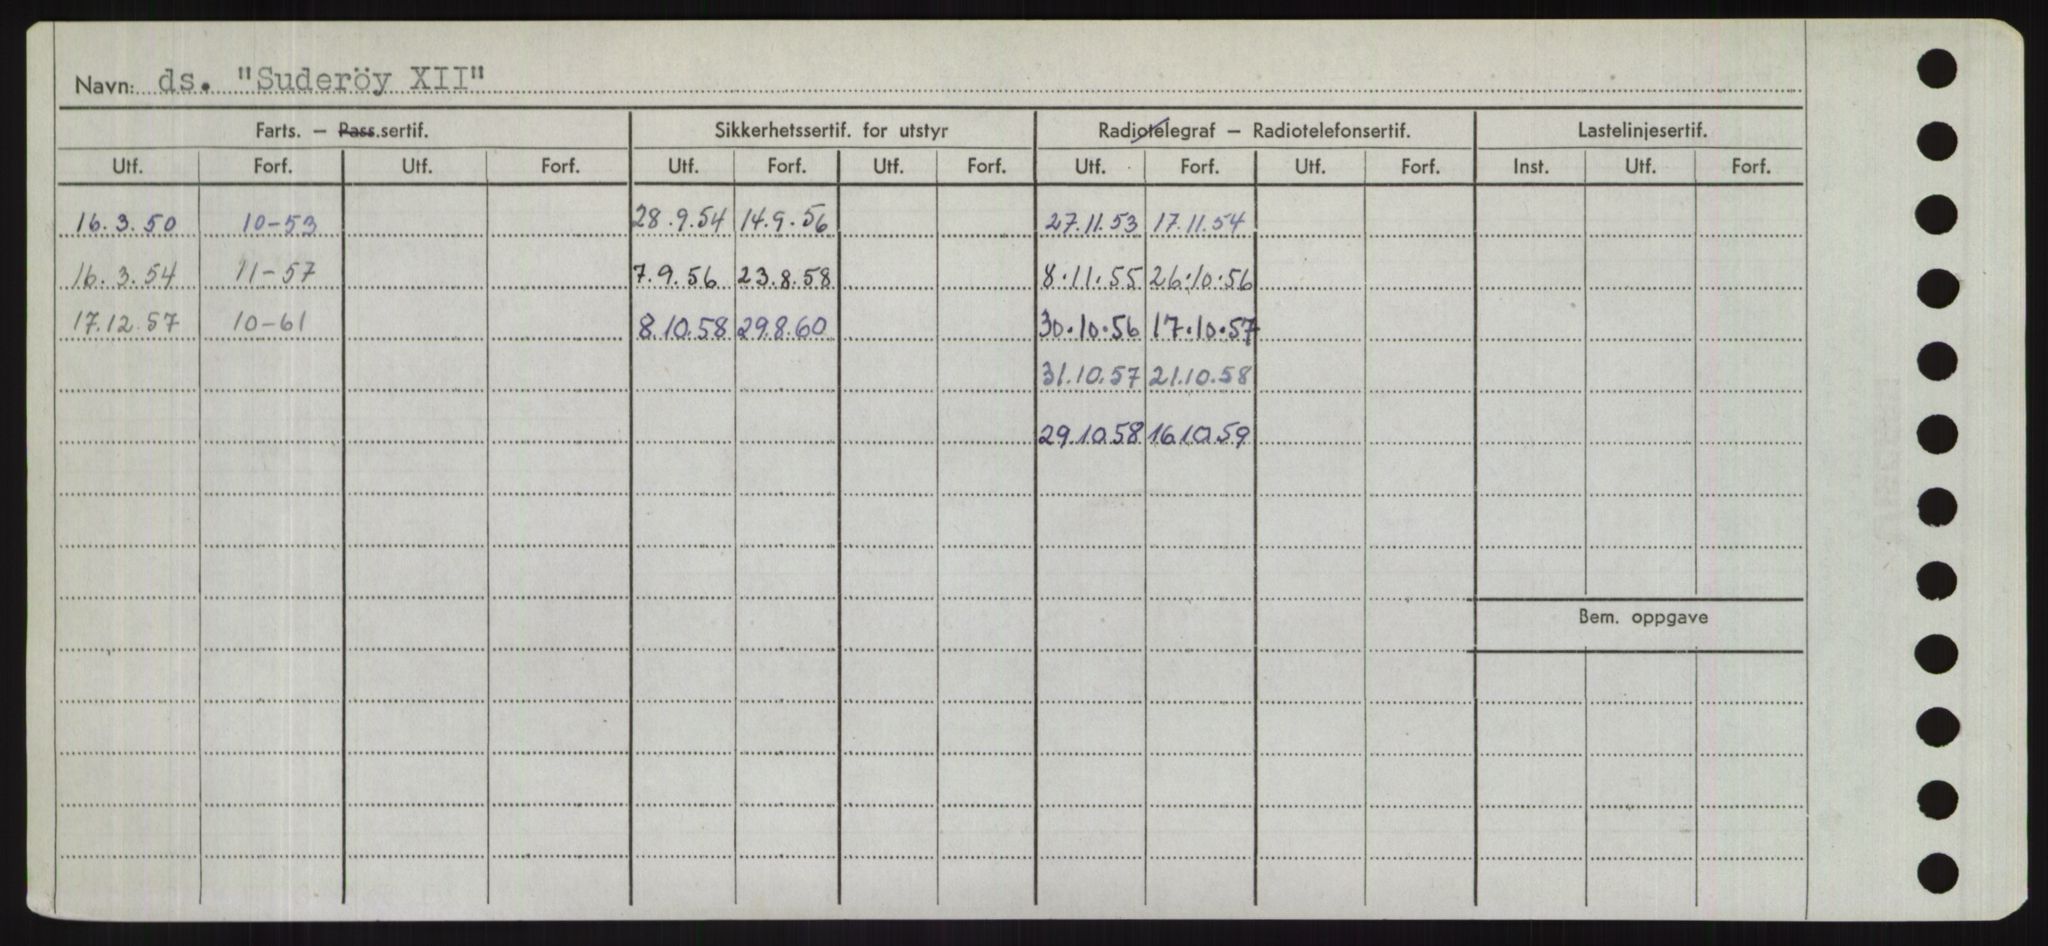 Navn: ds. "Suderöy XII"
Farts. – Pass.sertif. Sikkerhetssertif. for utstyr Radiotelegraf – Radiotelefonsertif. Lastelinjesertif.
Utf. Forf. Utf. Forf. Utf. Forf. Utf. Forf. Utf. Forf. Utf. Forf. Inst. Utf. Forf.
16.3.50 10-53 28.9.54 14.9.56 27.11.53 17.11.54
16.3.54 11-57 7.9.56 23.8.58 8.11.55 26.10.56
17.12.57 10-61 8.10.58 29.8.60 30.10.56 17.10.57
31.10.57 21.10.58
29.10.58 16.10.59
Bem. oppgave